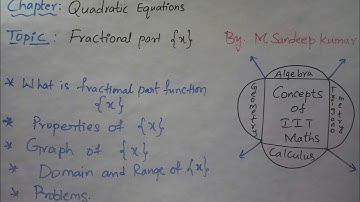 Chapter: Quadratic Equations
Topic: Fractional part {x}
By: M Sandeep Kumar
* What is fractional part function
{x}
* Properties of {x}
* Graph of {x}
* Domain and Range of {x}
* Problems.
Algebra
Geometry
Concepts
of
IIT
Maths
Trigonometry
Calculus